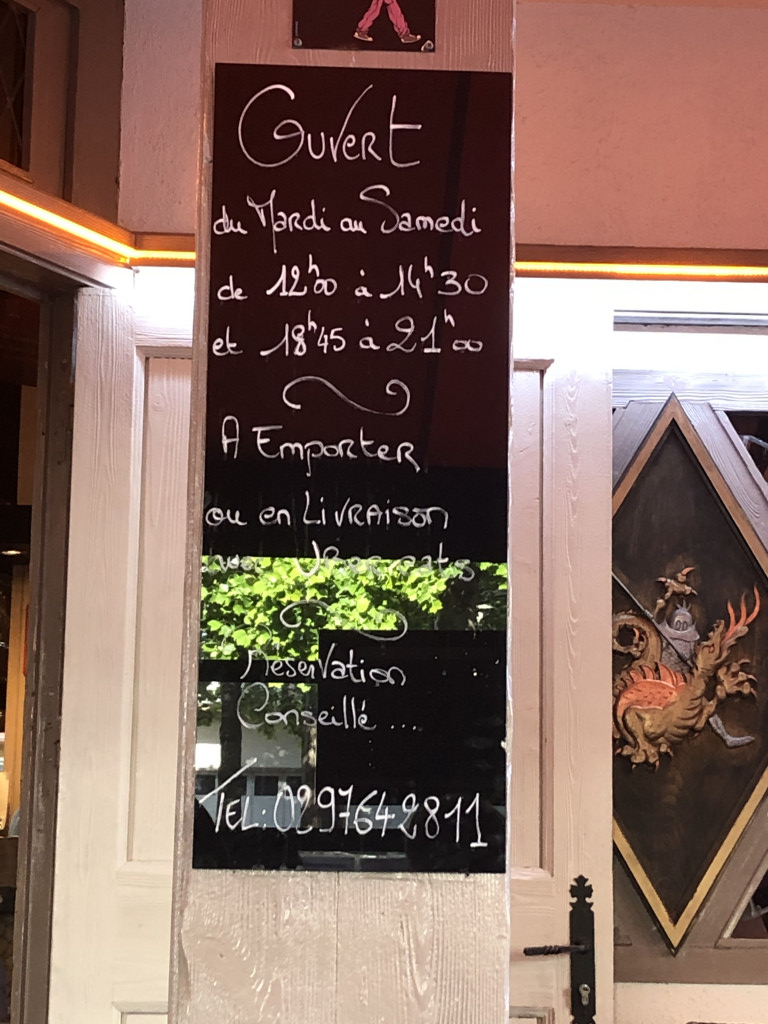 Ouvert
du Mardi au Samedi
de 12h00 à 14h30
et 18h45 à 21h00
A Emporter
ou en Livraison
avec Uber eats
Réservation
Conseillé ...
TEL: 0297642811